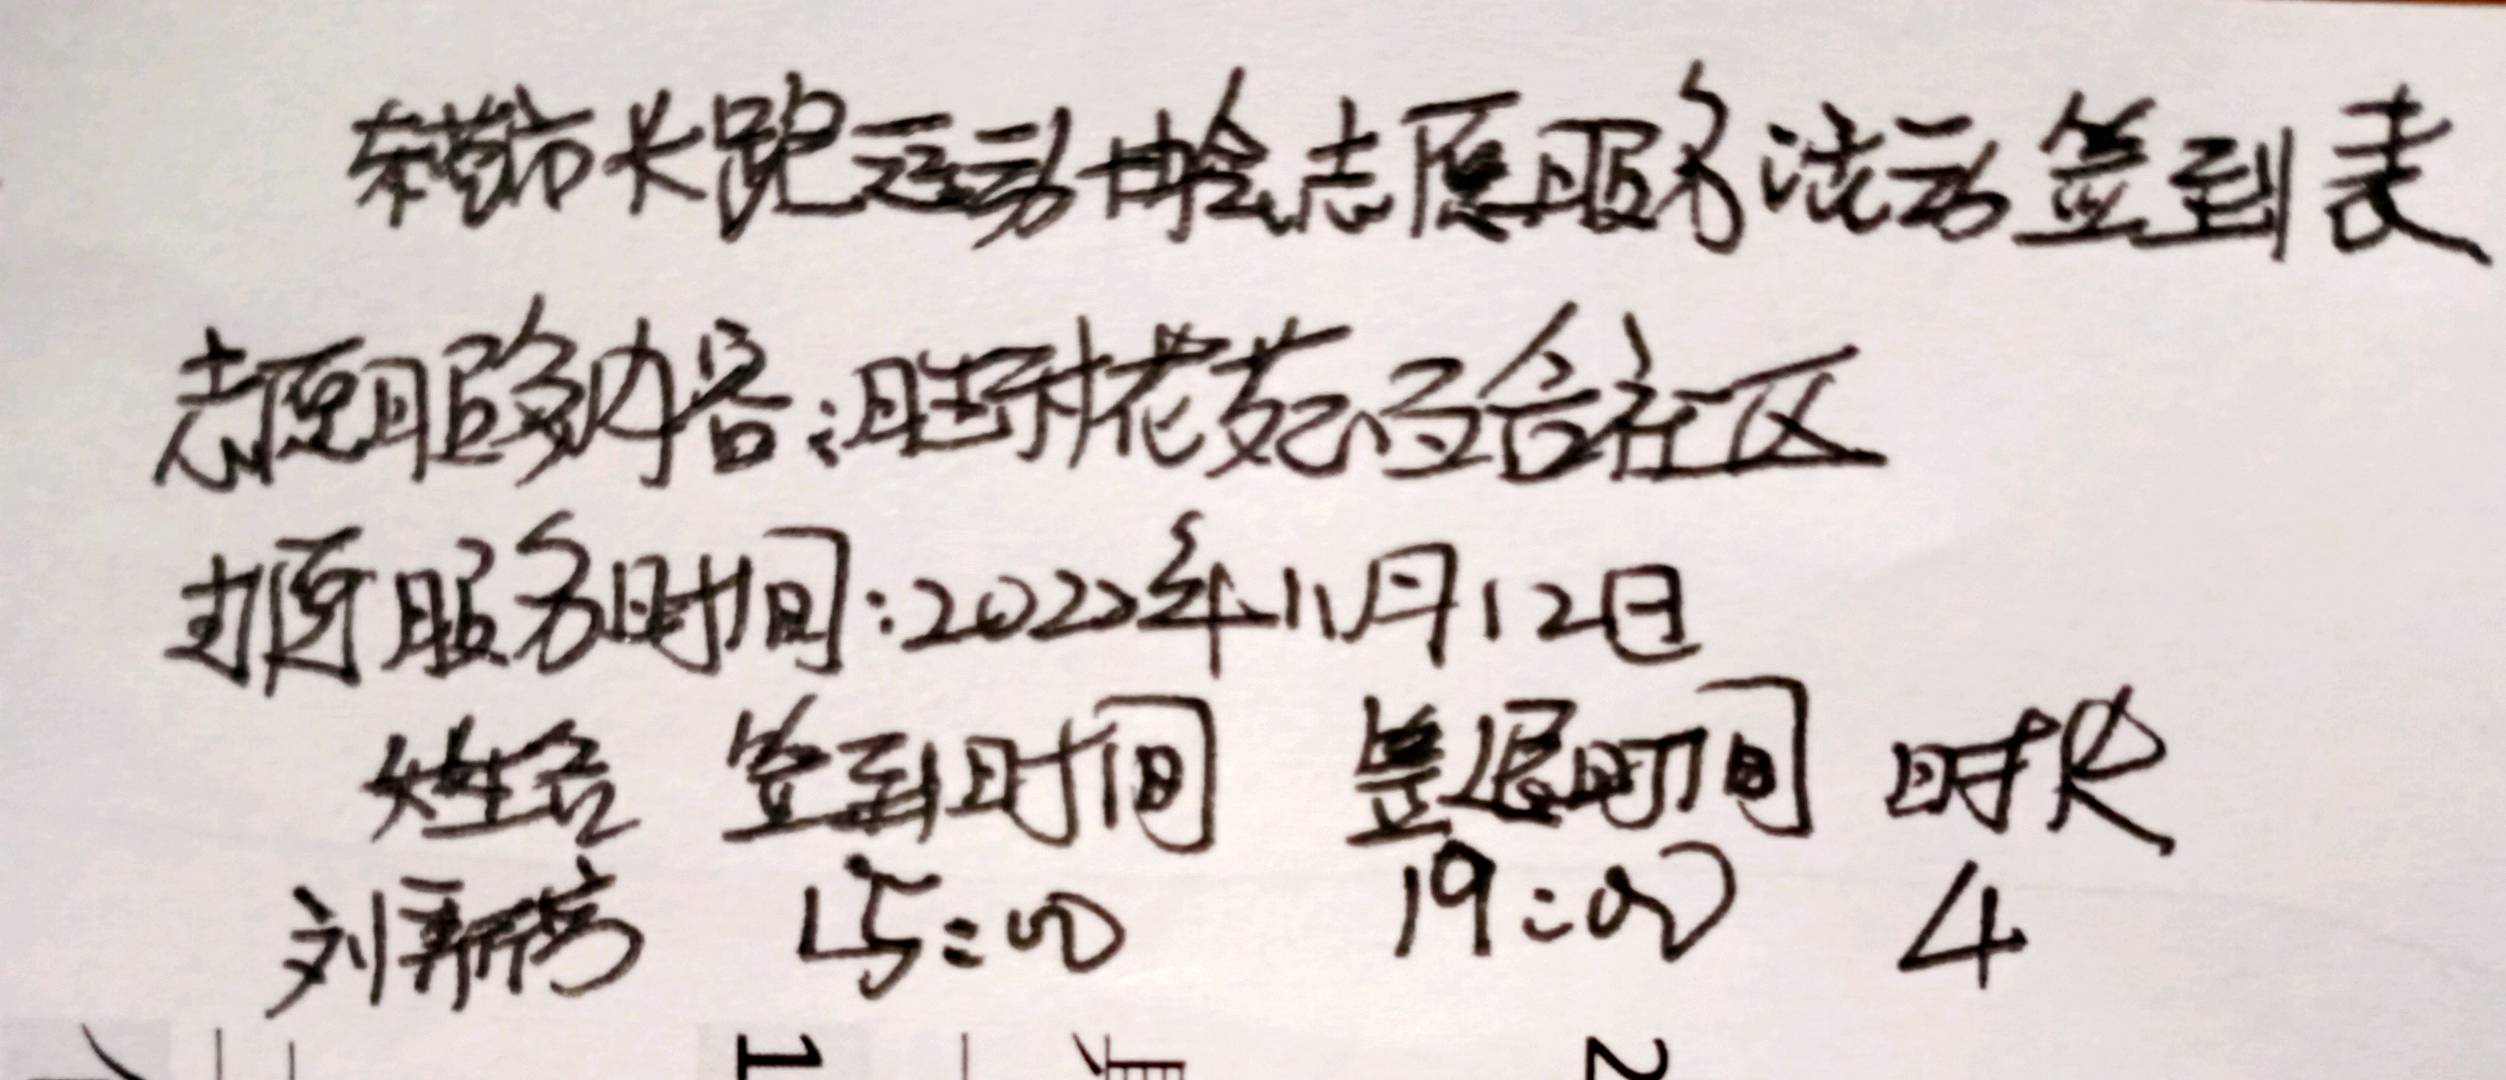 东营市长跑运动协会志愿服务活动签到表
志愿服务内容:胜利花苑百合社区
志愿服务时间:2022年11月12日
姓名 签到时间 签退时间 时长
刘 15:00 19:00 4
1 2